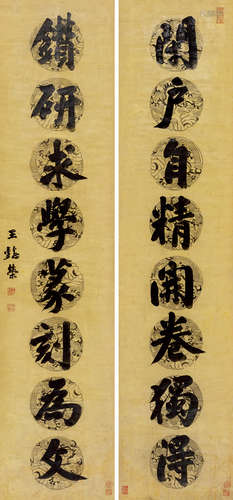 閉户自精開卷獨得
鑽研求學篆刻為文
王懿榮